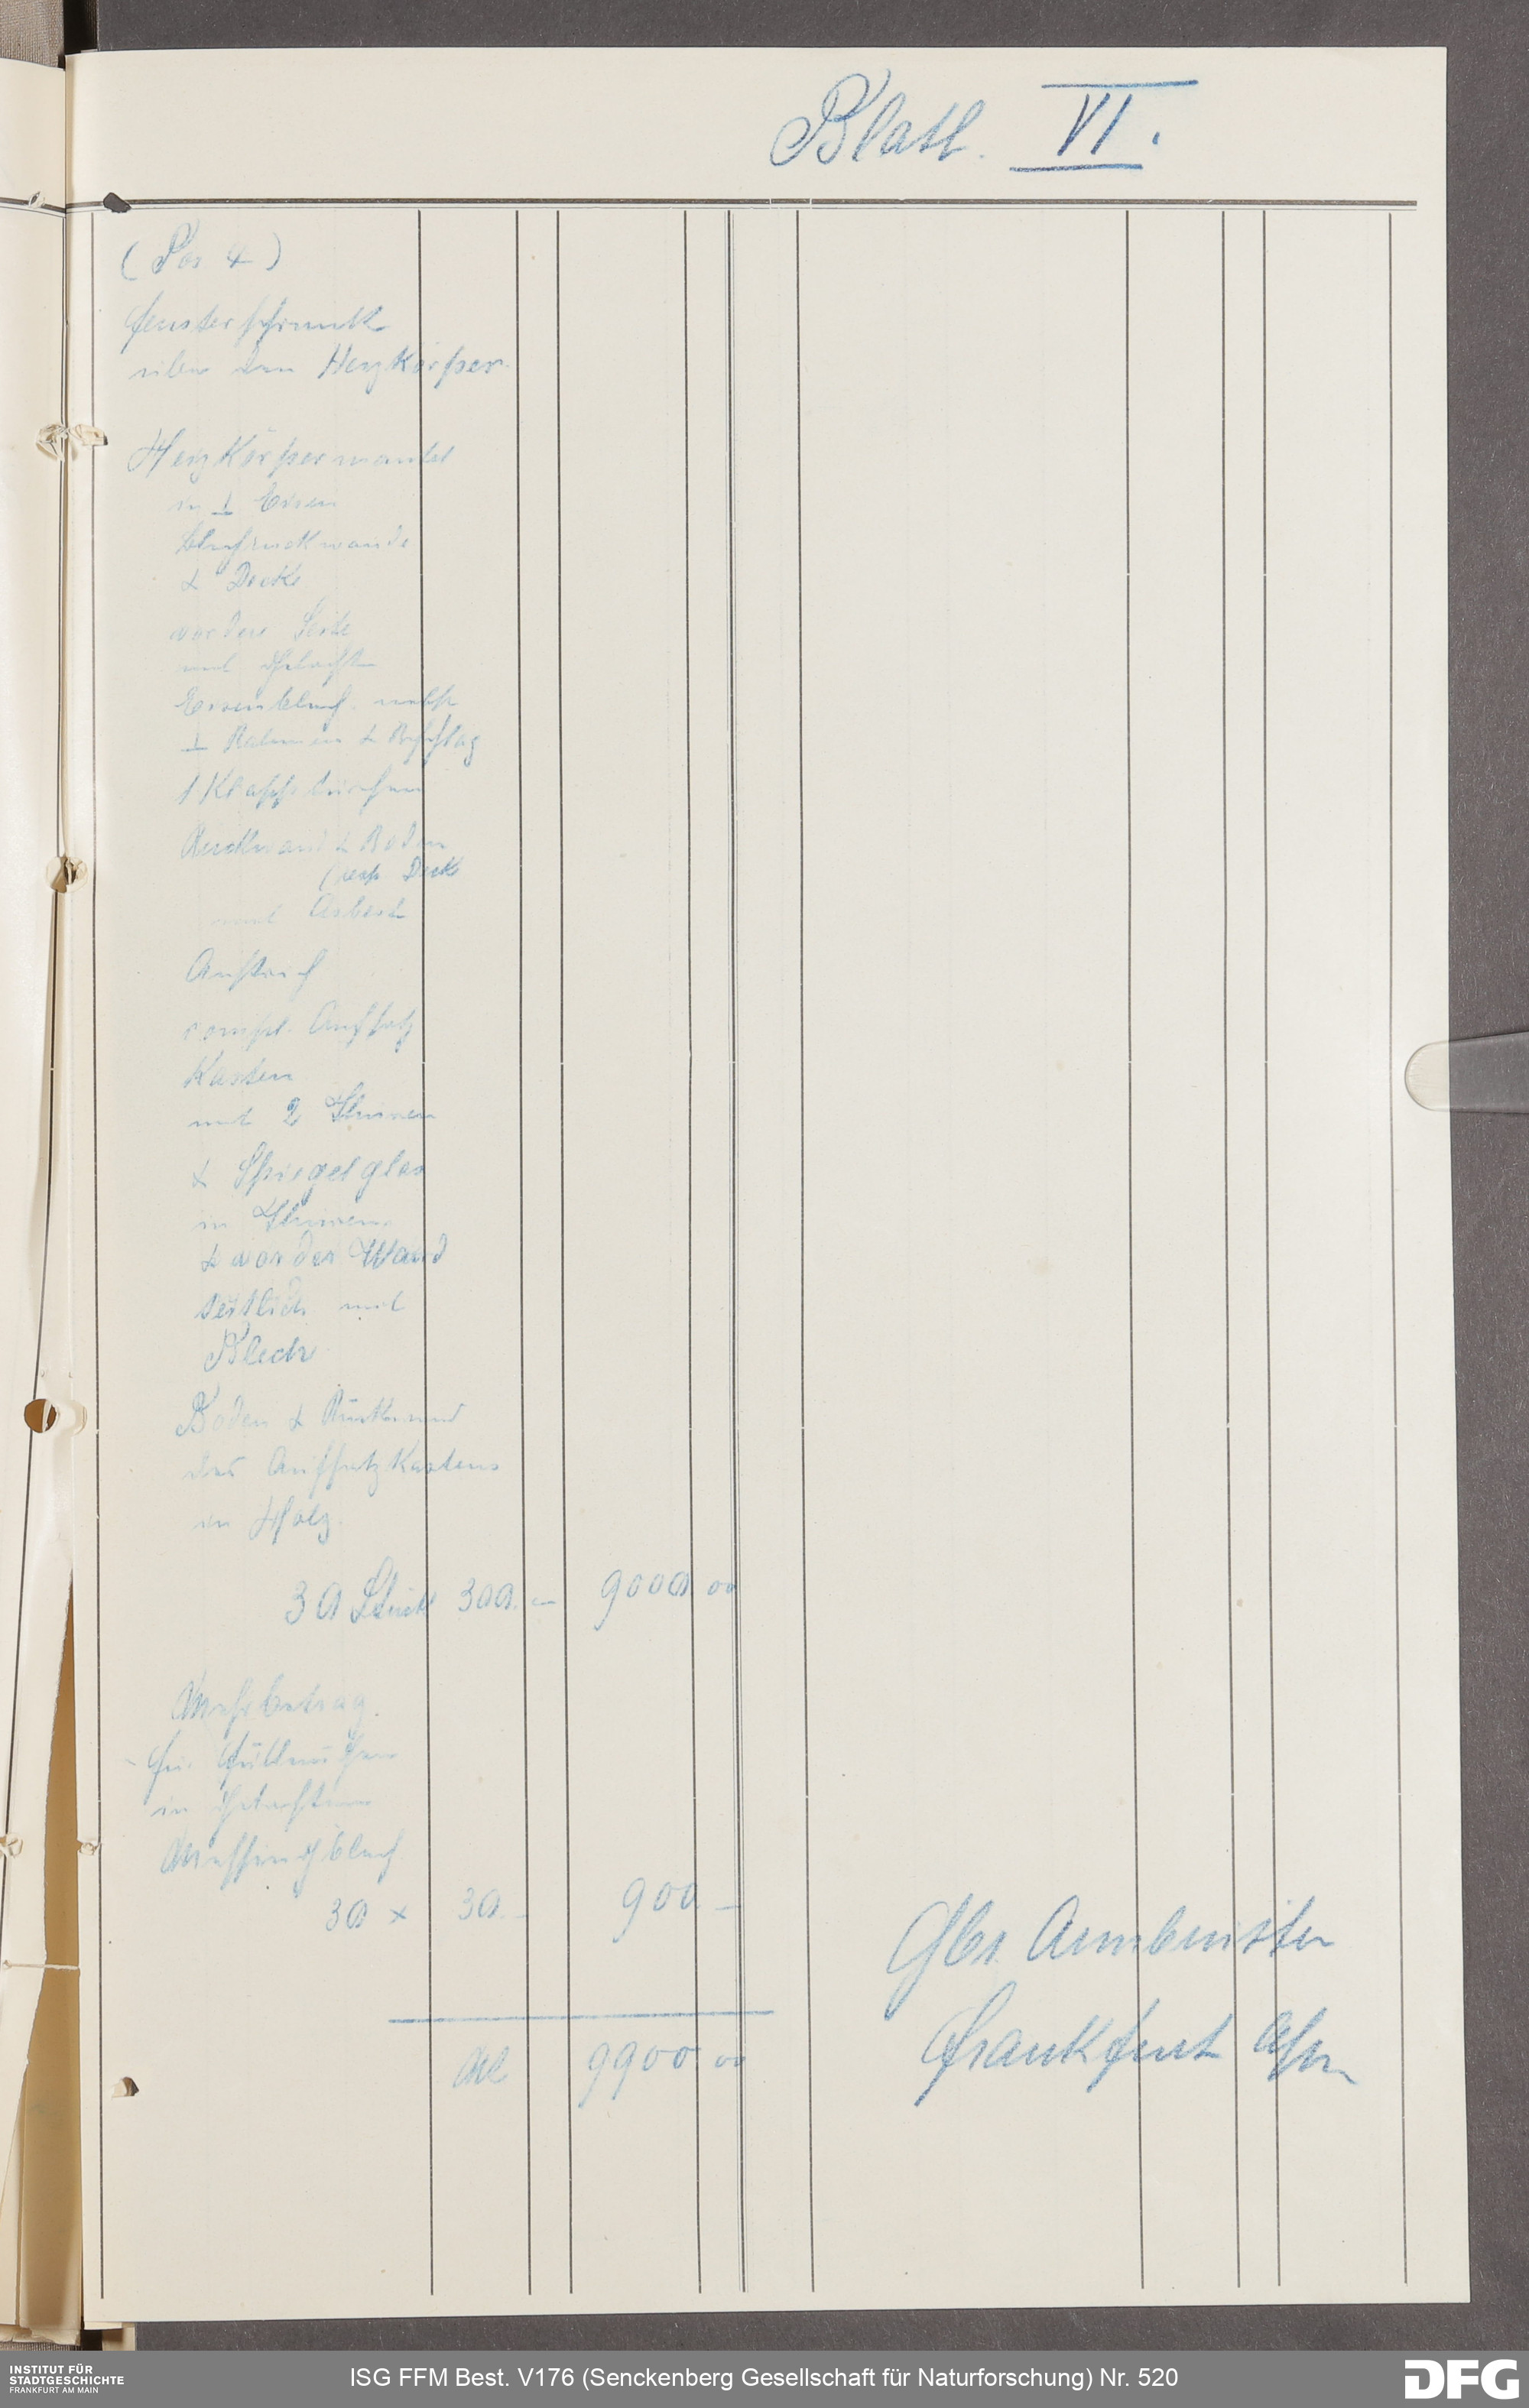 Blatt. VI.
(Pos 4)
Fensterschrank
über dem Heizkörper.
Heizkörpermantel
in ⊥ Eisen
Blechruckwände
& Decke
vordere Seite
mit gelocht
Eisenblech nebst
⊥ Rahmen & Beschlag
1 Klappthürchen
Ruckwand & Boden
(resp Deck
mit Asbest
Anstrich
compl. Aufsatz
Kasten
mit 2 Thüren
& Spiegelglas
in Thüren
& vorder Wand
seitlich mit
Blech
Boden & Rückwand
des Aufsatzkastens
in Holz.
30 Stück 300.— 9000 00
Mehrbetrag.
für Füllungen
in gelochtem
Messingblech
30 × 30.— 900.—
M 9900 00
Gbr. Armbrüster
Frankfurt a/m
INSTITUT FÜR
STADTGESCHICHTE
FRANKFURT AM MAIN
ISG FFM Best. V176 (Senckenberg Gesellschaft für Naturforschung) Nr. 520
DFG